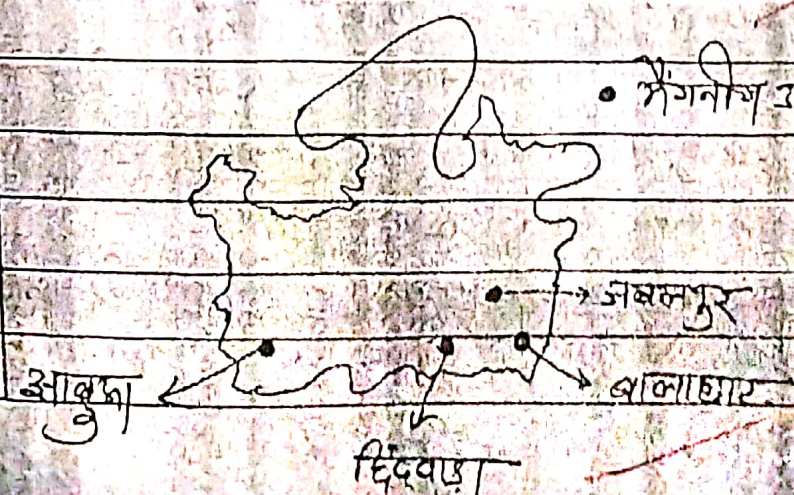 मैंगनीज
जबलपुर
झाबुआ
बालाघाट
छिंदवाड़ा